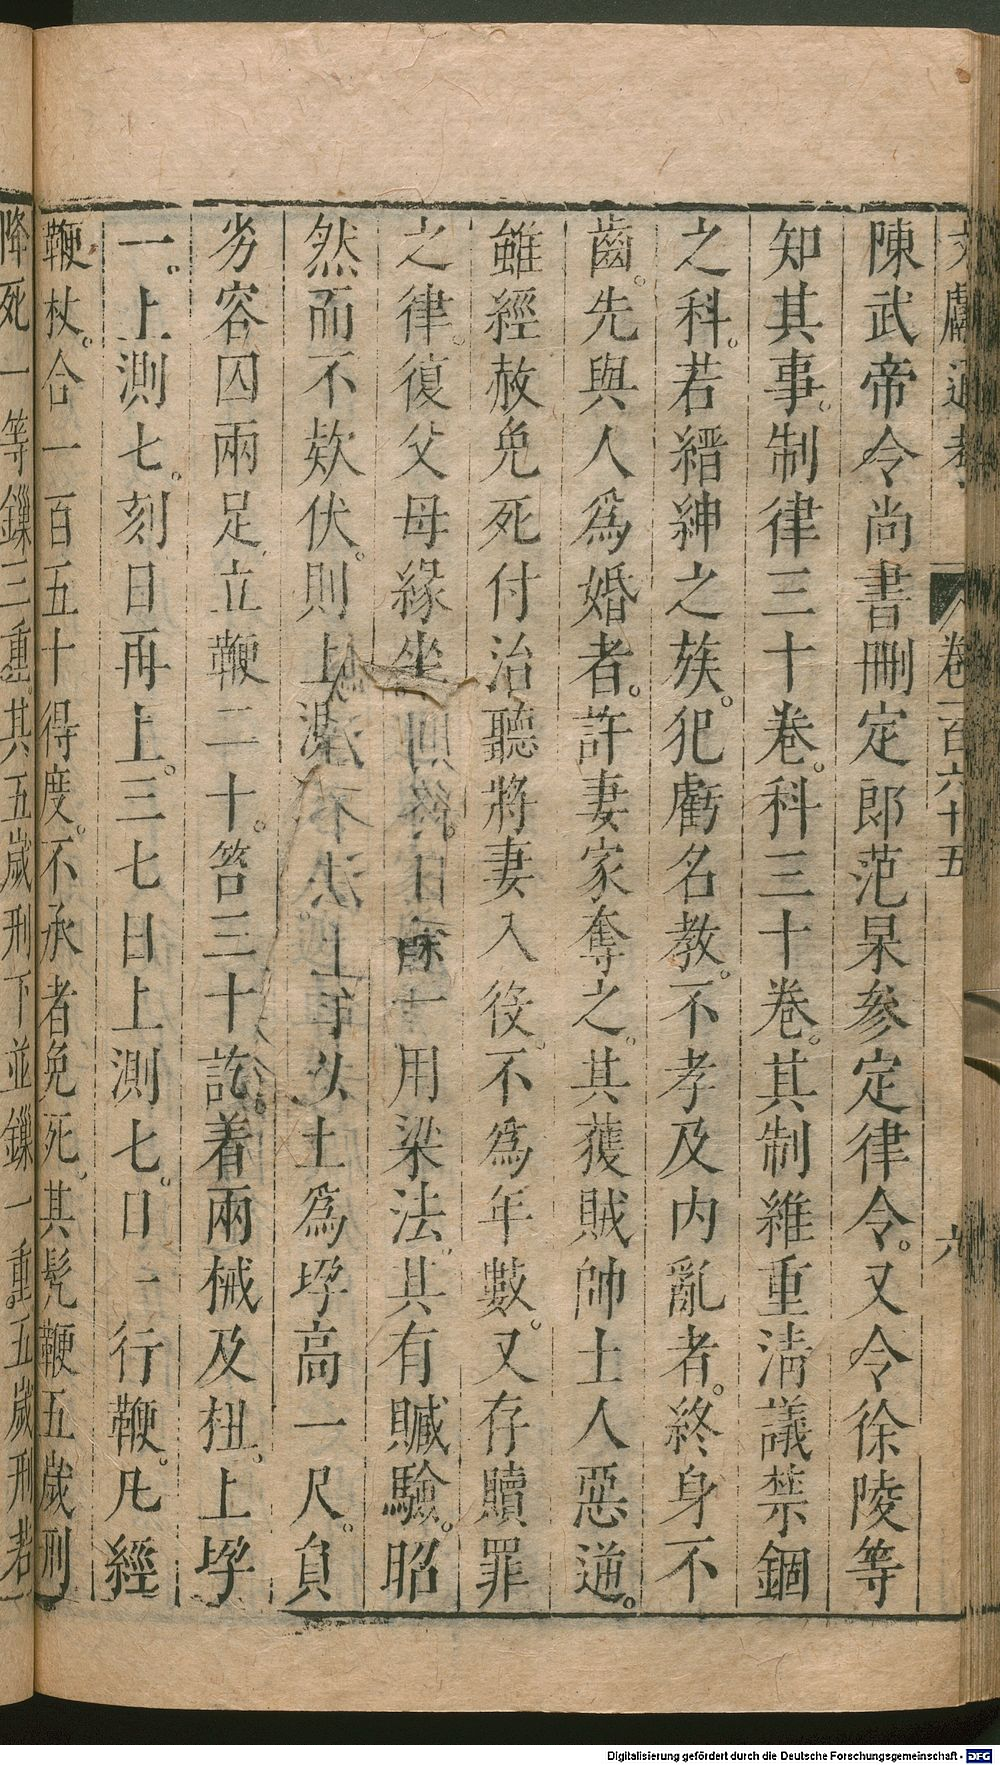 文獻通考 卷一百六十五 六
陳武帝令尚書刪定郎范杲參定律令。又令徐陵等
知其事。制律三十卷。科三十卷。其制維重淸議禁錮
之科。若縉紳之族。犯虧名教。不孝及內亂者。終身不
齒。先與人爲婚者。許妻家奪之。其獲賊帥士人惡逆。
雖經赦免死付治聽將妻入役。不爲年數。又存贖罪
之律。復父母緣坐。用梁法。其有贓驗。昭
然而不款伏。則上測土爲垛高一尺。負
劣容囚兩足立鞭二十。笞三十訖。着兩械及杻。上垛
一。上測七。刻日再上。三七日上測七。日一行鞭。凡經
鞭杖。合一百五十得度。不承者免死。其髡鞭五歲刑
降死一等鏁二重。其五歲刑下並鏁一重。五歲刑若
Digitalisierung gefördert durch die Deutsche Forschungsgemeinschaft - DFG